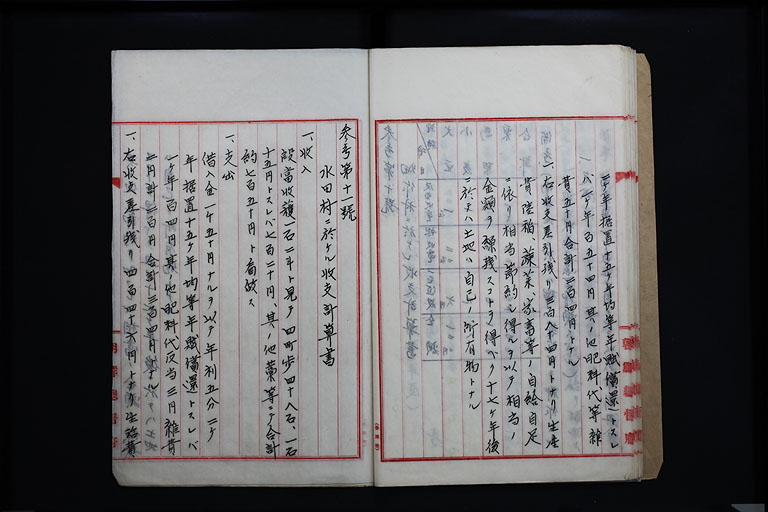 二ケ年据置十五ケ年均等年賦償還トスレ
バ一ケ年百五十四円其ノ他肥料代等雑
費五十円合計二百四円トナル
一、右収支差引残リ三百八十四円トナリ生産
費陸稲蔬菜家畜等ノ自給自足
ニ依リ相当節約シ得ルヲ以テ相当ノ
金額ヲ繰残スコトヲ得ベク十七ケ年後
ニ於テハ土地ハ自己ノ所有物トナル
参考第十一號
水田村ニ於ケル収支計算書
一、収入
段當収穫一石二斗ト見テ四町歩四十八石、一石
十五円トスレバ七百二十円、其ノ他藁等ニテ合計
約七百五十円ト看做ス
一、支出
借入金一千五十円ナルヲ以テ年利五分ニケ
年据置十五ケ年均等年賦償還トスレバ
一ケ年百四円其ノ他肥料代反当三円雑費
合計三百四円トナル
一、右収支差引残リ四百四十六円トナリ生活費